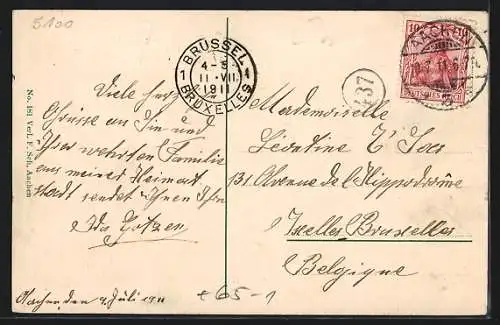 5100
BRUSSEL 1
4-5
11 VII
1911
1 BRUXELLES
10 10
DEUTSCHES REICH
AACHEN
437
No. 181 Verl. F. Sch. Aachen
Viele herzl.
Grüsse an Sie und
Ihre wehrten Familie
aus meiner Heimat
stadt sendet Ihnen Ihr
Ida Gotzen
Aachen, den 9. Juli 1911
Mademoiselle
Léontine T' Sas
131 Avenue de l'Hippodrôme
Ixelles Bruxelles
Belgique
65-1